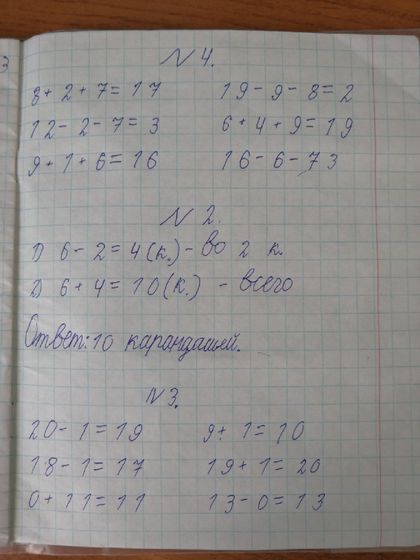 3
N 4.
8 + 2 + 7 = 17 19 - 9 - 8 = 2
12 - 2 - 7 = 3 6 + 4 + 9 = 19
9 + 1 + 6 = 16 16 - 6 - 7 3
N 2.
1) 6 - 2 = 4 (к.) - во 2 к.
2) 6 + 4 = 10 (к.) - всего
Ответ: 10 карандашей.
N 3.
20 - 1 = 19 9 + 1 = 10
18 - 1 = 17 19 + 1 = 20
0 + 11 = 11 13 - 0 = 13